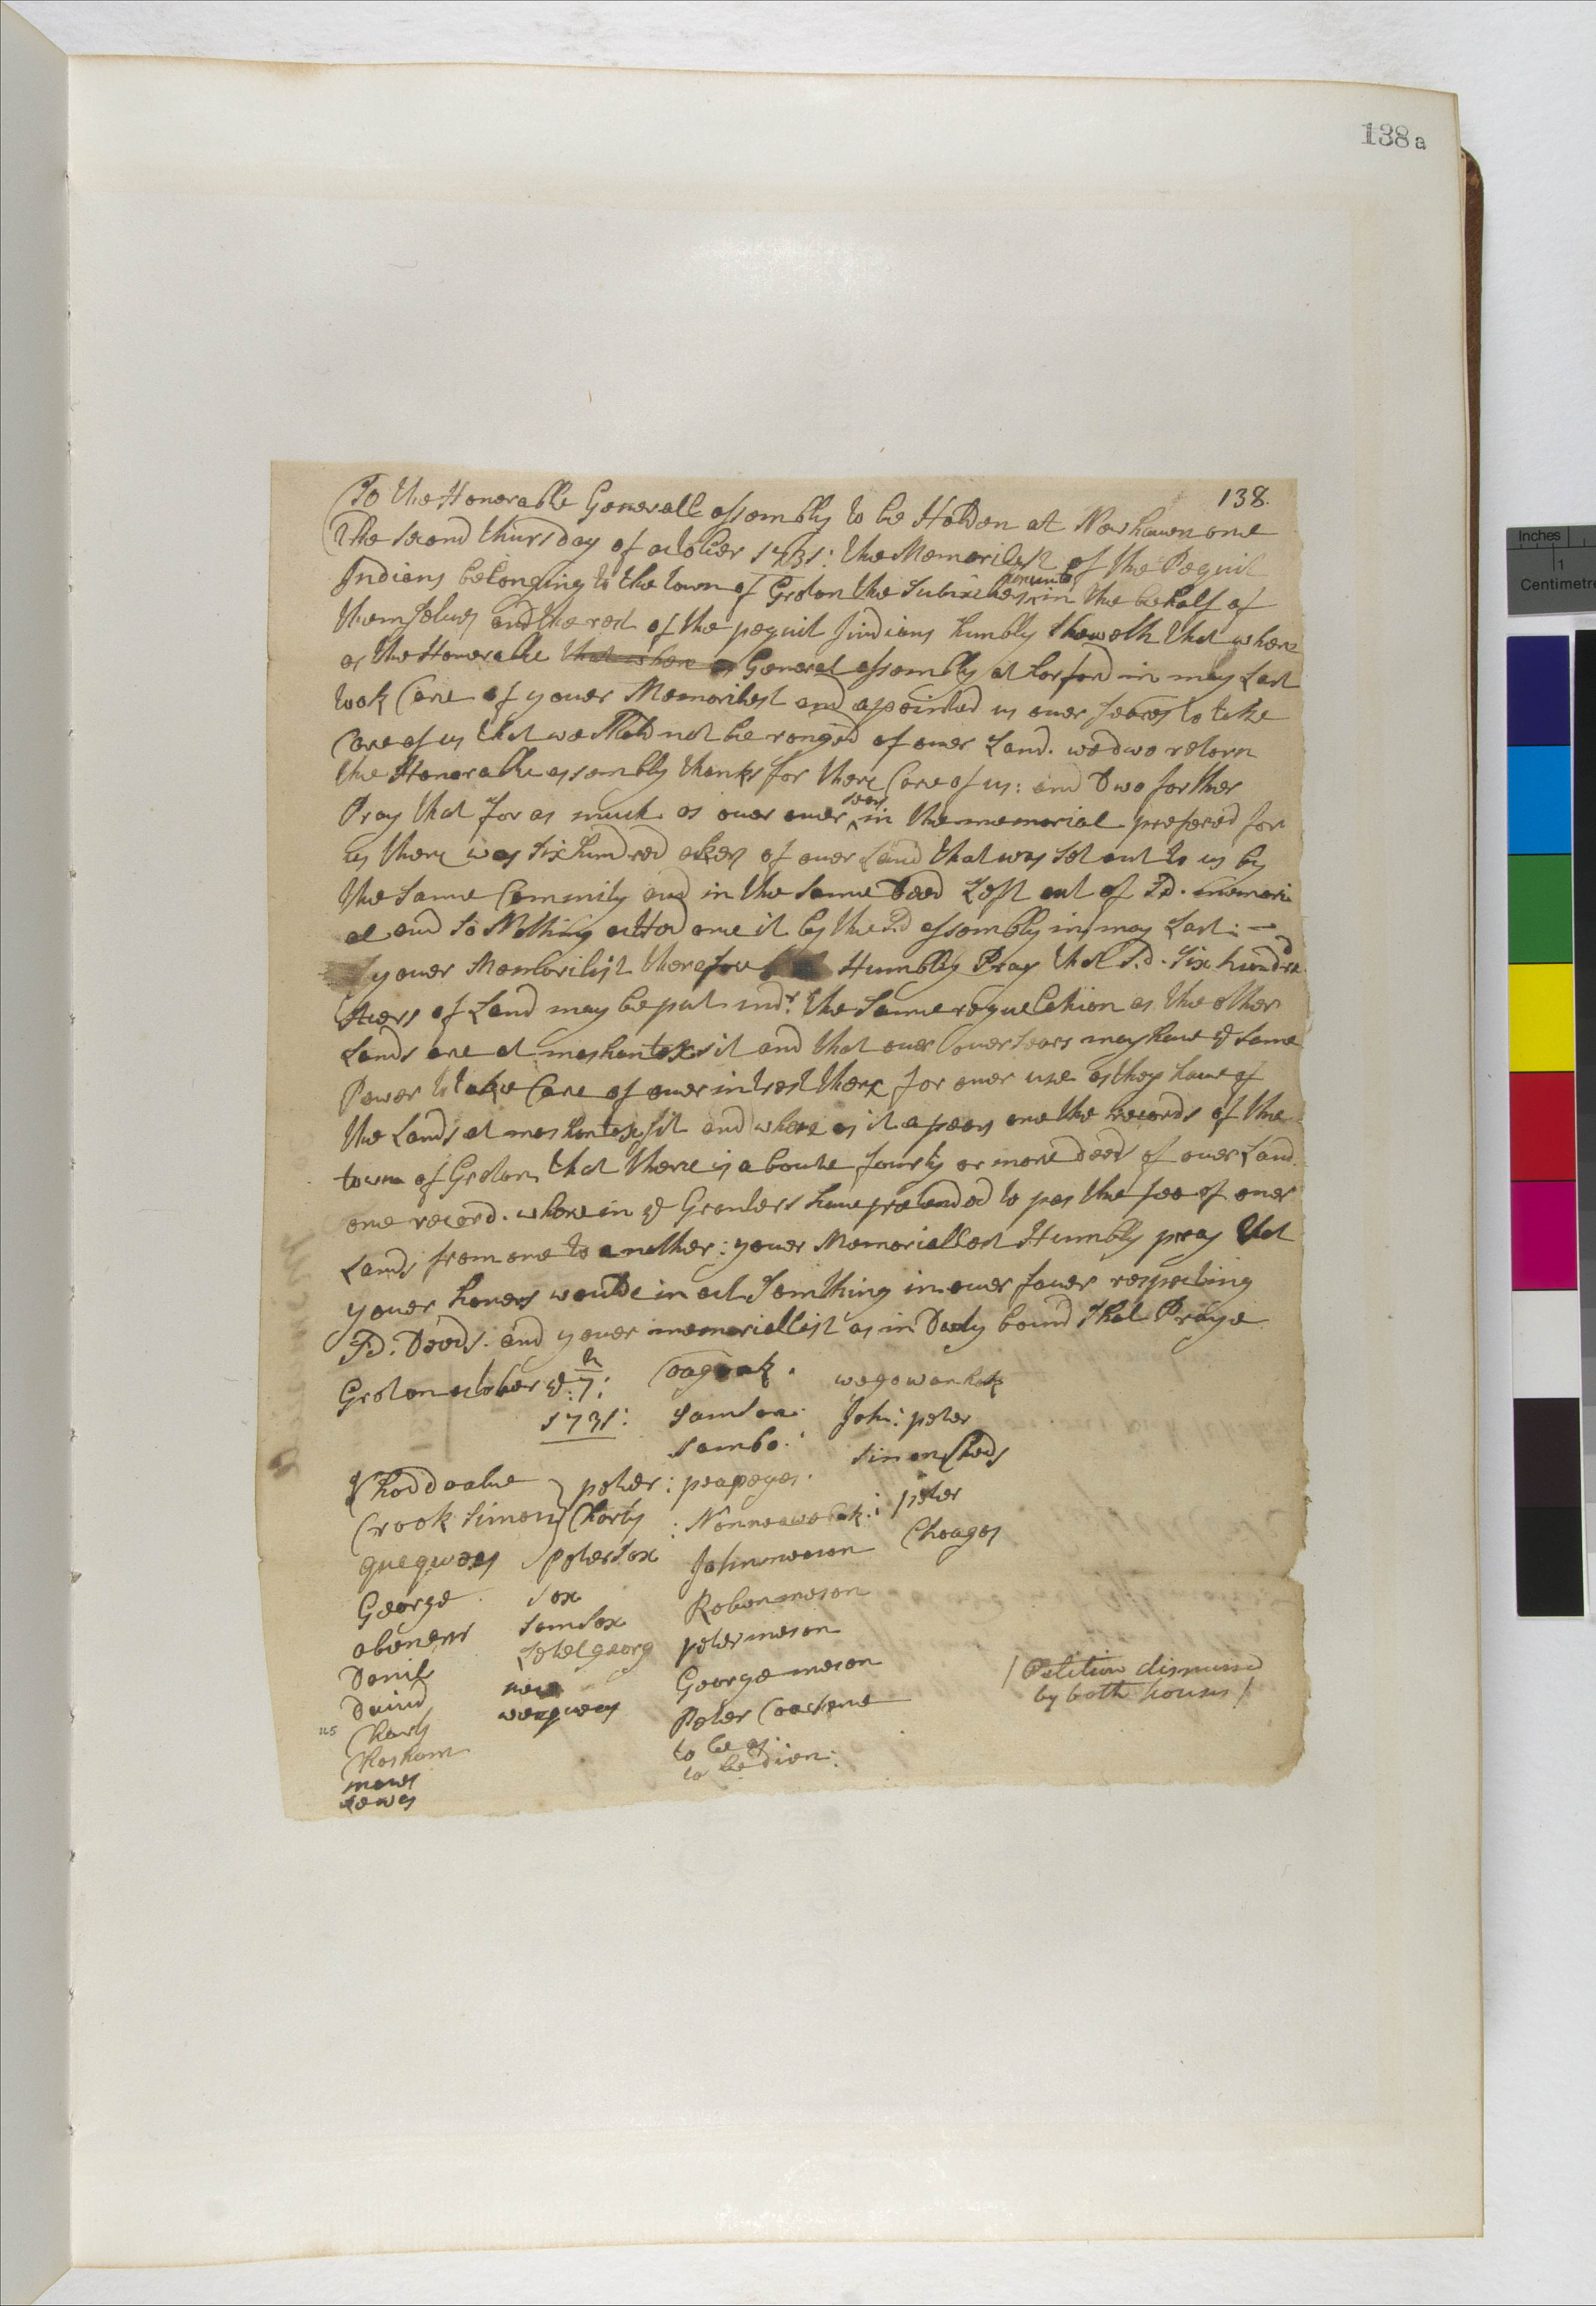 138a
138.
To the Honerable Generall assembly to be Holden at Newhauen one
The second thursday of october 1731: the Memorilest of the Pequit
Indians belonging to the town of Groton the Subscribers hereunto in the behalf of
themselues and the rest of the pequit Jindians humbly sheweth that where
as the Honerable that where as General assembly at harford in may Last
took Care of youer Memorilest and apointed us ouer seares to take
Care of us that we shold not be ronged of ouer Land. we dwo retorn
the Honerable assembly thanks for there Care of us: and Dwo forther
Pray that for as much as ouer ouer sears in the memorial prefered for
us there was six hundred akers of ouer Land that was set out to us by
the same Commity and in the same Deed Left out of Sd. memori
al and so Nothing acted one it by the Sd assembly in may Last: —
youer Memborilist therefore Humbly Pray that S.d. six hundred
Acers of Land may be put undr. the same reguelation as the other
Lands are at mashantoxsit and that ouer ouersears may haue ye same
Power to take Care of ouer intrest there for ouer use as they haue of
the Lands at mashantoxsit and where as it apears one the records of the
town of Groton that there is aboute fourty or more deeds of ouer Land
one record. where in ye Granters haue pretended to pas the fee of ouer
Lands from one to another: youer Memoriallest Humbly pray that
youer honers woulde in act Somthing in ouer fauer respecting
Sd: Deeds. and youer memoriallist as in Duty bound shal Praye
Groton october ye: 7th:
1731:
Samson:
sambo:
John: peter
simon Cheds
Crook simon
Charly
peter
Choages
quequoas
peter sox
George
sox
Roben meson
abenerr
sam sox
peter meson
Danil
Letel georg
George meson
Dauid
Peter
Charls
to be as:
to be dien:
115
Petition dismissed
by both houses